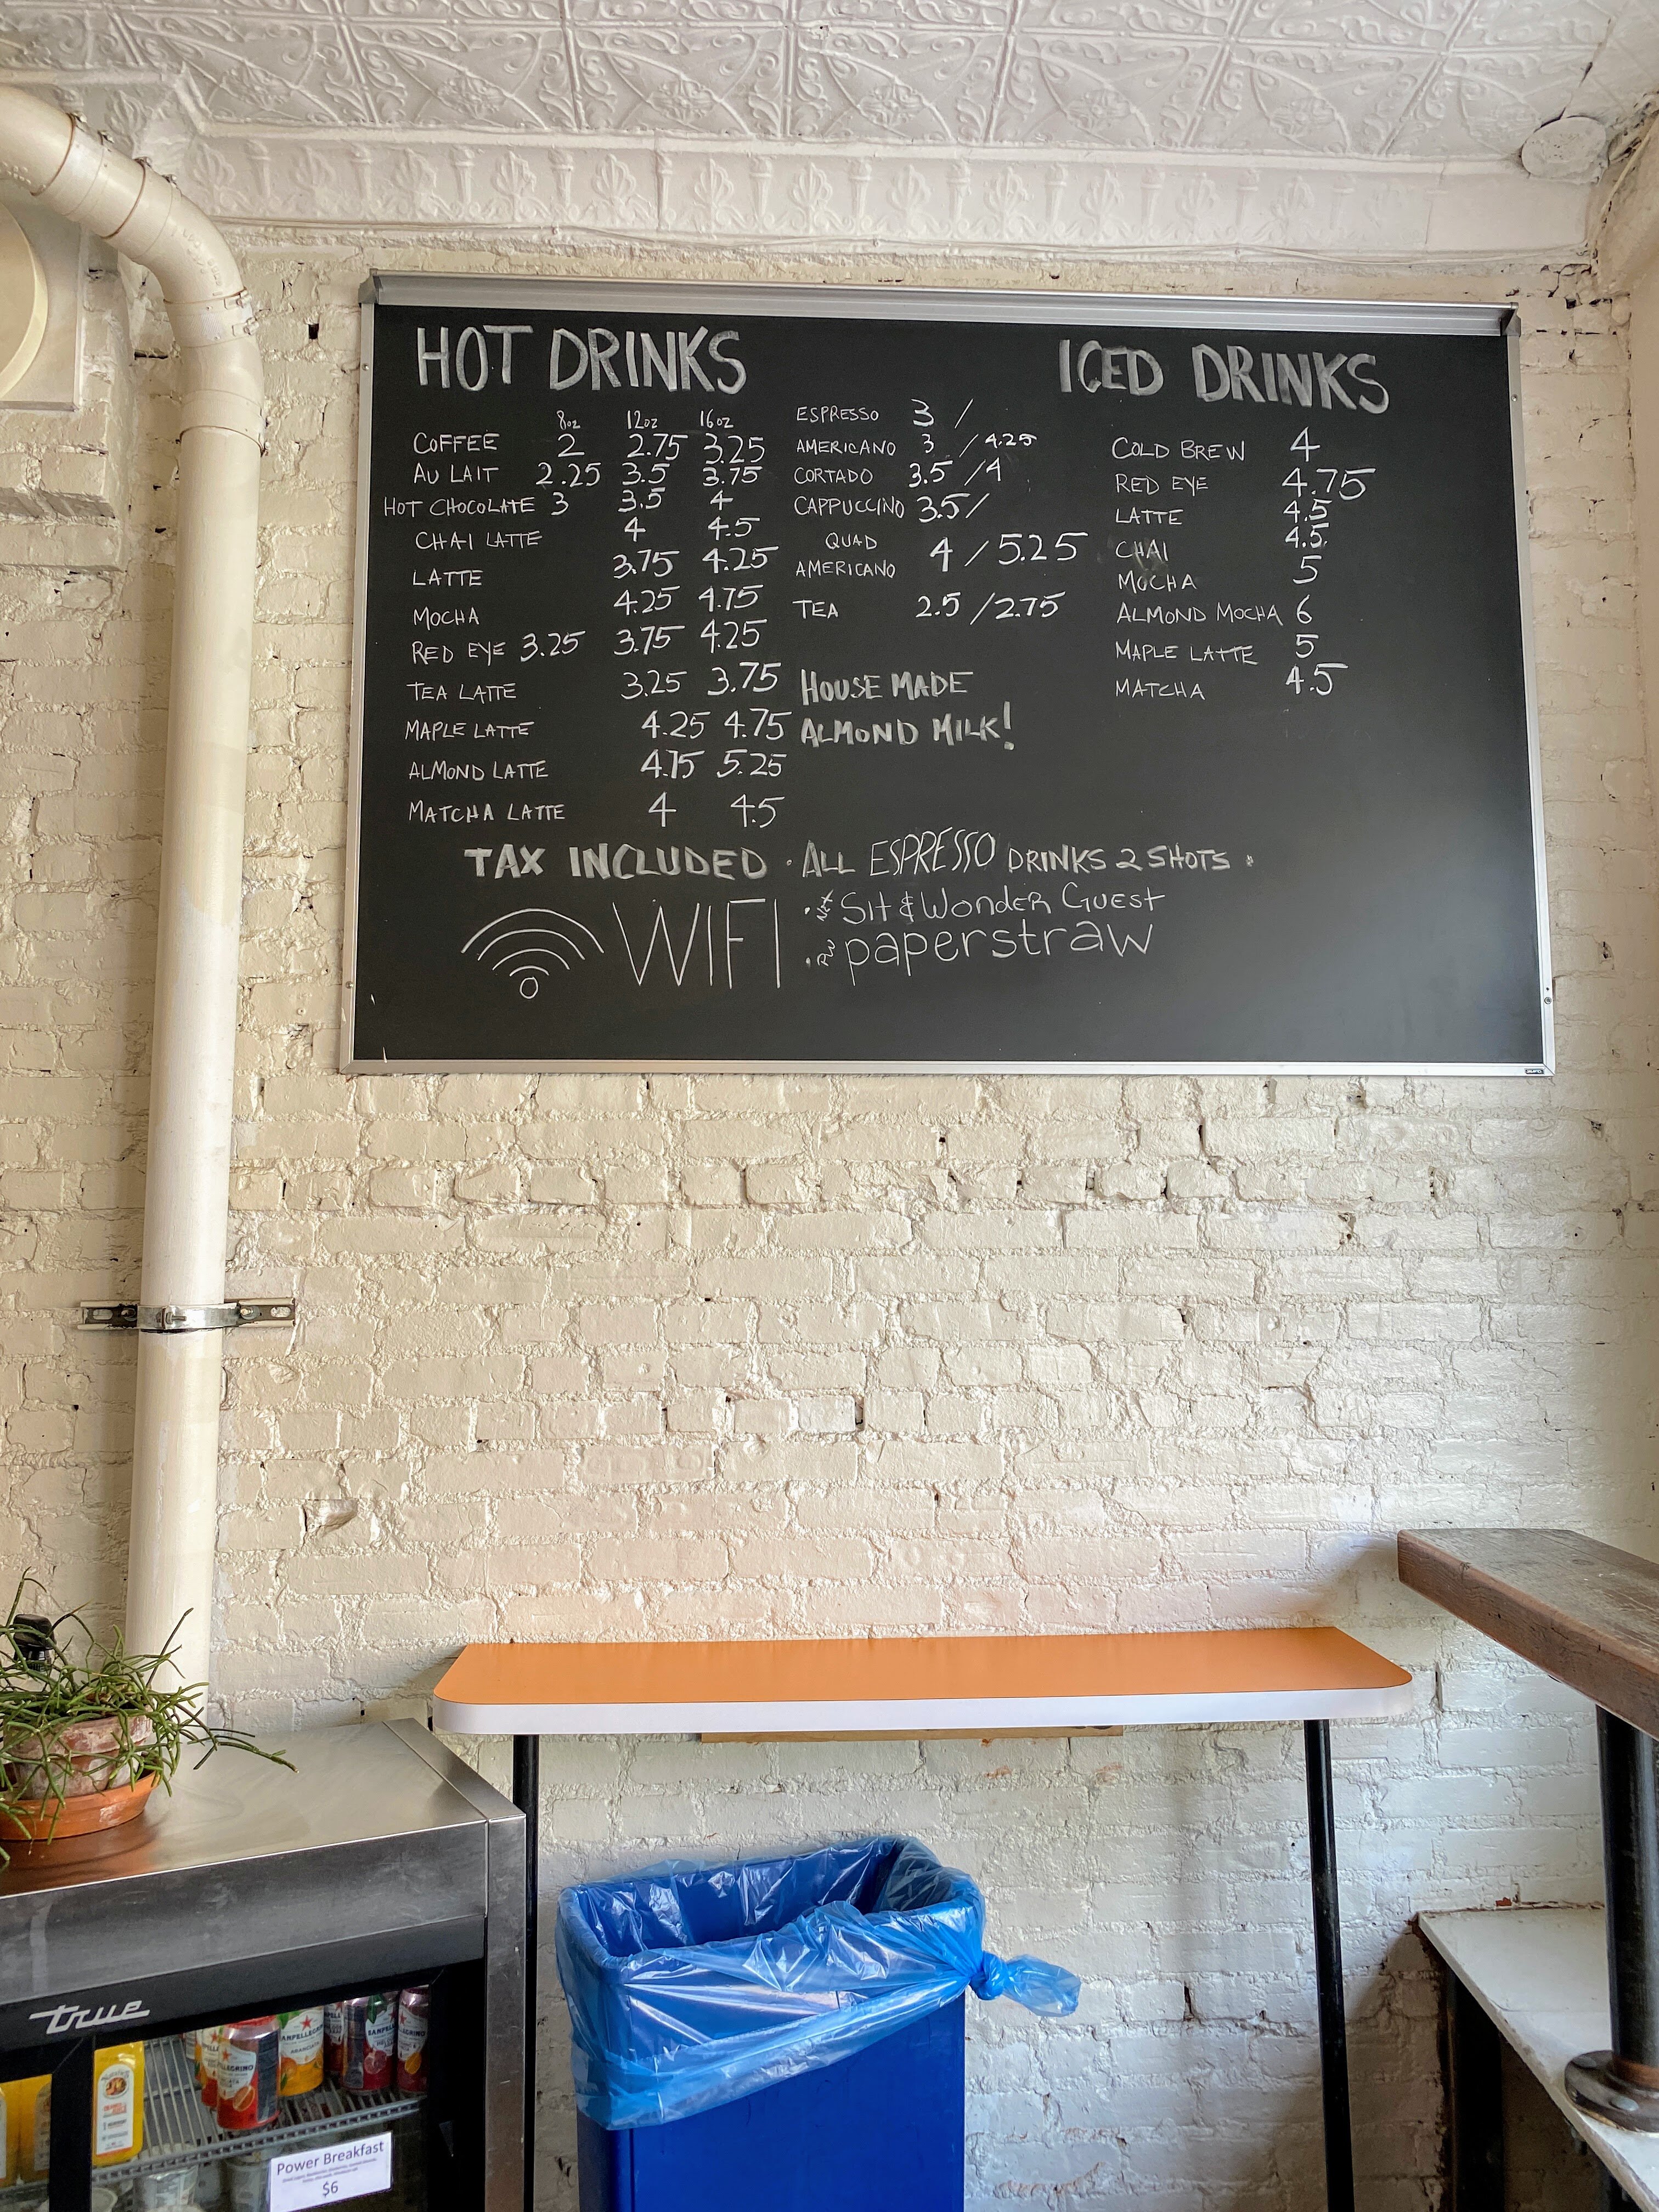 HOT DRINKS
8oz 12oz 16oz
COFFEE 2 2.75 3.25
AU LAIT 2.25 3.5 3.75
HOT CHOCOLATE 3 3.5 4
CHAI LATTE 4 4.5
LATTE 3.75 4.25
MOCHA 4.25 4.75
RED EYE 3.25 3.75 4.25
TEA LATTE 3.25 3.75
MAPLE LATTE 4.25 4.75
ALMOND LATTE 4.75 5.25
MATCHA LATTE 4 4.5
ESPRESSO 3 /
AMERICANO 3 / 4.25
CORTADO 3.5 / 4
CAPPUCCINO 3.5 /
QUAD
AMERICANO 4 / 5.25
TEA 2.5 / 2.75
HOUSE MADE
ALMOND MILK!
ICED DRINKS
COLD BREW 4
RED EYE 4.75
LATTE 4.5
CHAI 4.5
MOCHA 5
ALMOND MOCHA 6
MAPLE LATTE 5
MATCHA 4.5
TAX INCLUDED · ALL ESPRESSO DRINKS 2 SHOTS ·
WIFI
Sit & Wonder Guest
paperstraw
true
Power Breakfast
$6